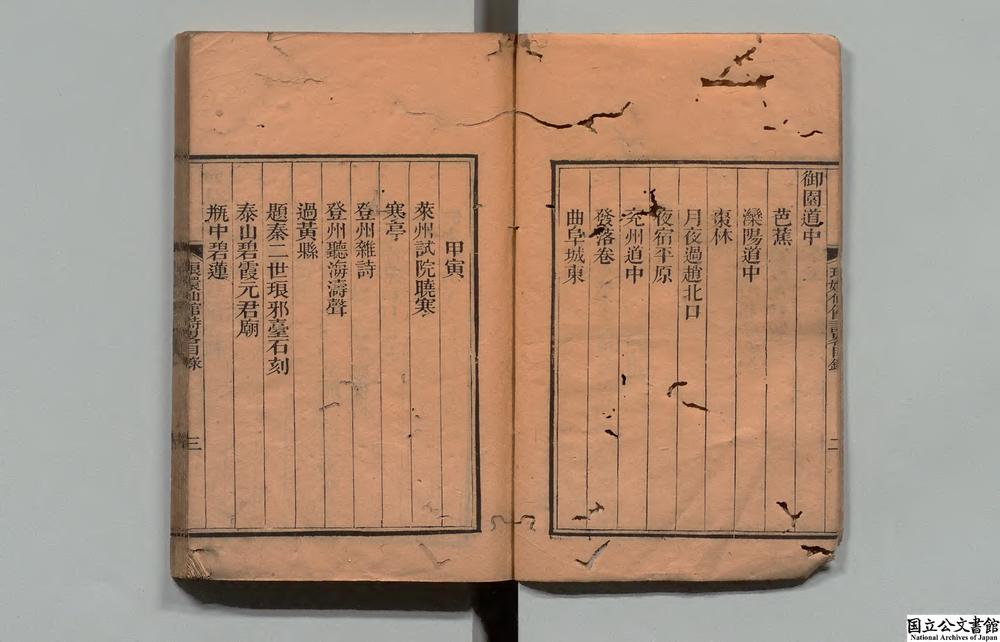 御園道中
芭蕉
灤陽道中
棗林
月夜過趙北口
夜宿平原
兗州道中
發落卷
曲阜城東
二
甲寅
萊州試院曉寒
寒亭
登州雜詩
登州聽海濤聲
過黃縣
題秦二世琅邪臺石刻
泰山碧霞元君廟
瓶中碧蓮
三
国立公文書館
National Archives of Japan